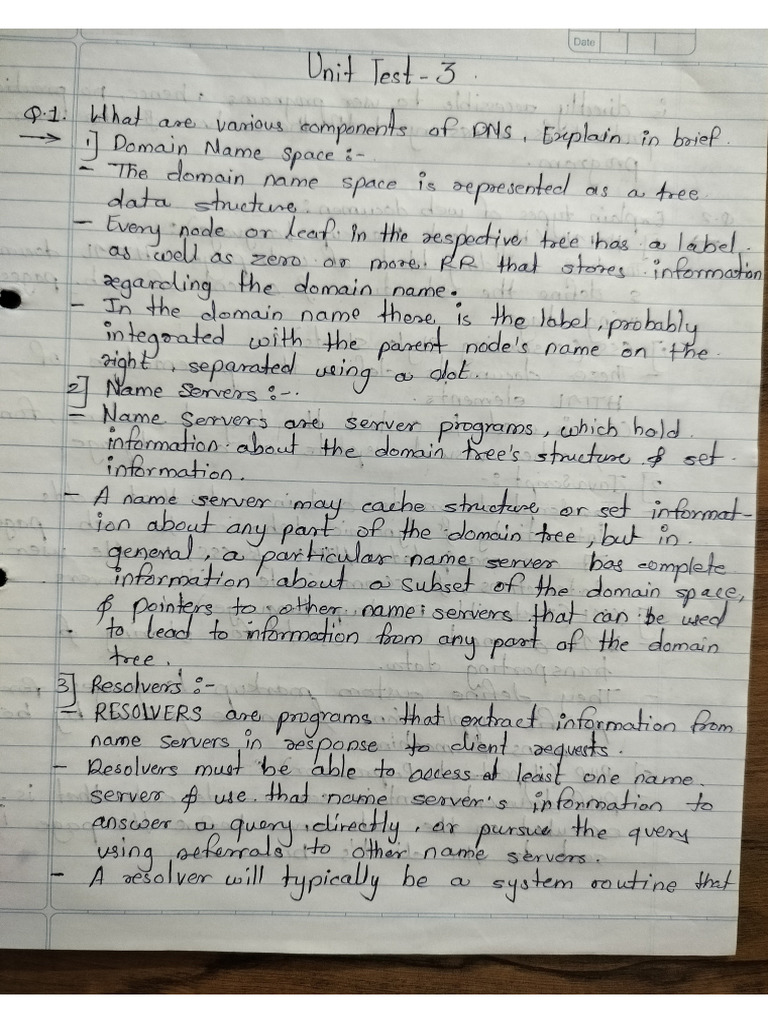 Date
Unit Test - 3
Q.1. What are various components of DNS, Explain in brief.
→ 1] Domain Name Space :-
- The domain name space is represented as a tree
data structure
- Every node or leaf in the respective tree has a label
as well as zero or more RR that stores information
regarding the domain name.
- In the domain name there is the label, probably
integrated with the parent node's name on the
right, separated using a dot.
2] Name Servers :-
- Name Servers are server programs, which hold
information about the domain tree's structure & set
information.
- A name server may cache structure or set informat-
ion about any part of the domain tree, but in
general, a particular name server has complete
information about a subset of the domain space,
& pointers to other name servers that can be used
to lead to information from any part of the domain
tree.
3] Resolvers :-
- RESOLVERS are programs that extract information from
name servers in response to client requests.
- Resolvers must be able to access at least one name
server & use that name server's information to
answer a query directly, or pursue the query
using referrals to other name servers.
- A resolver will typically be a system routine that